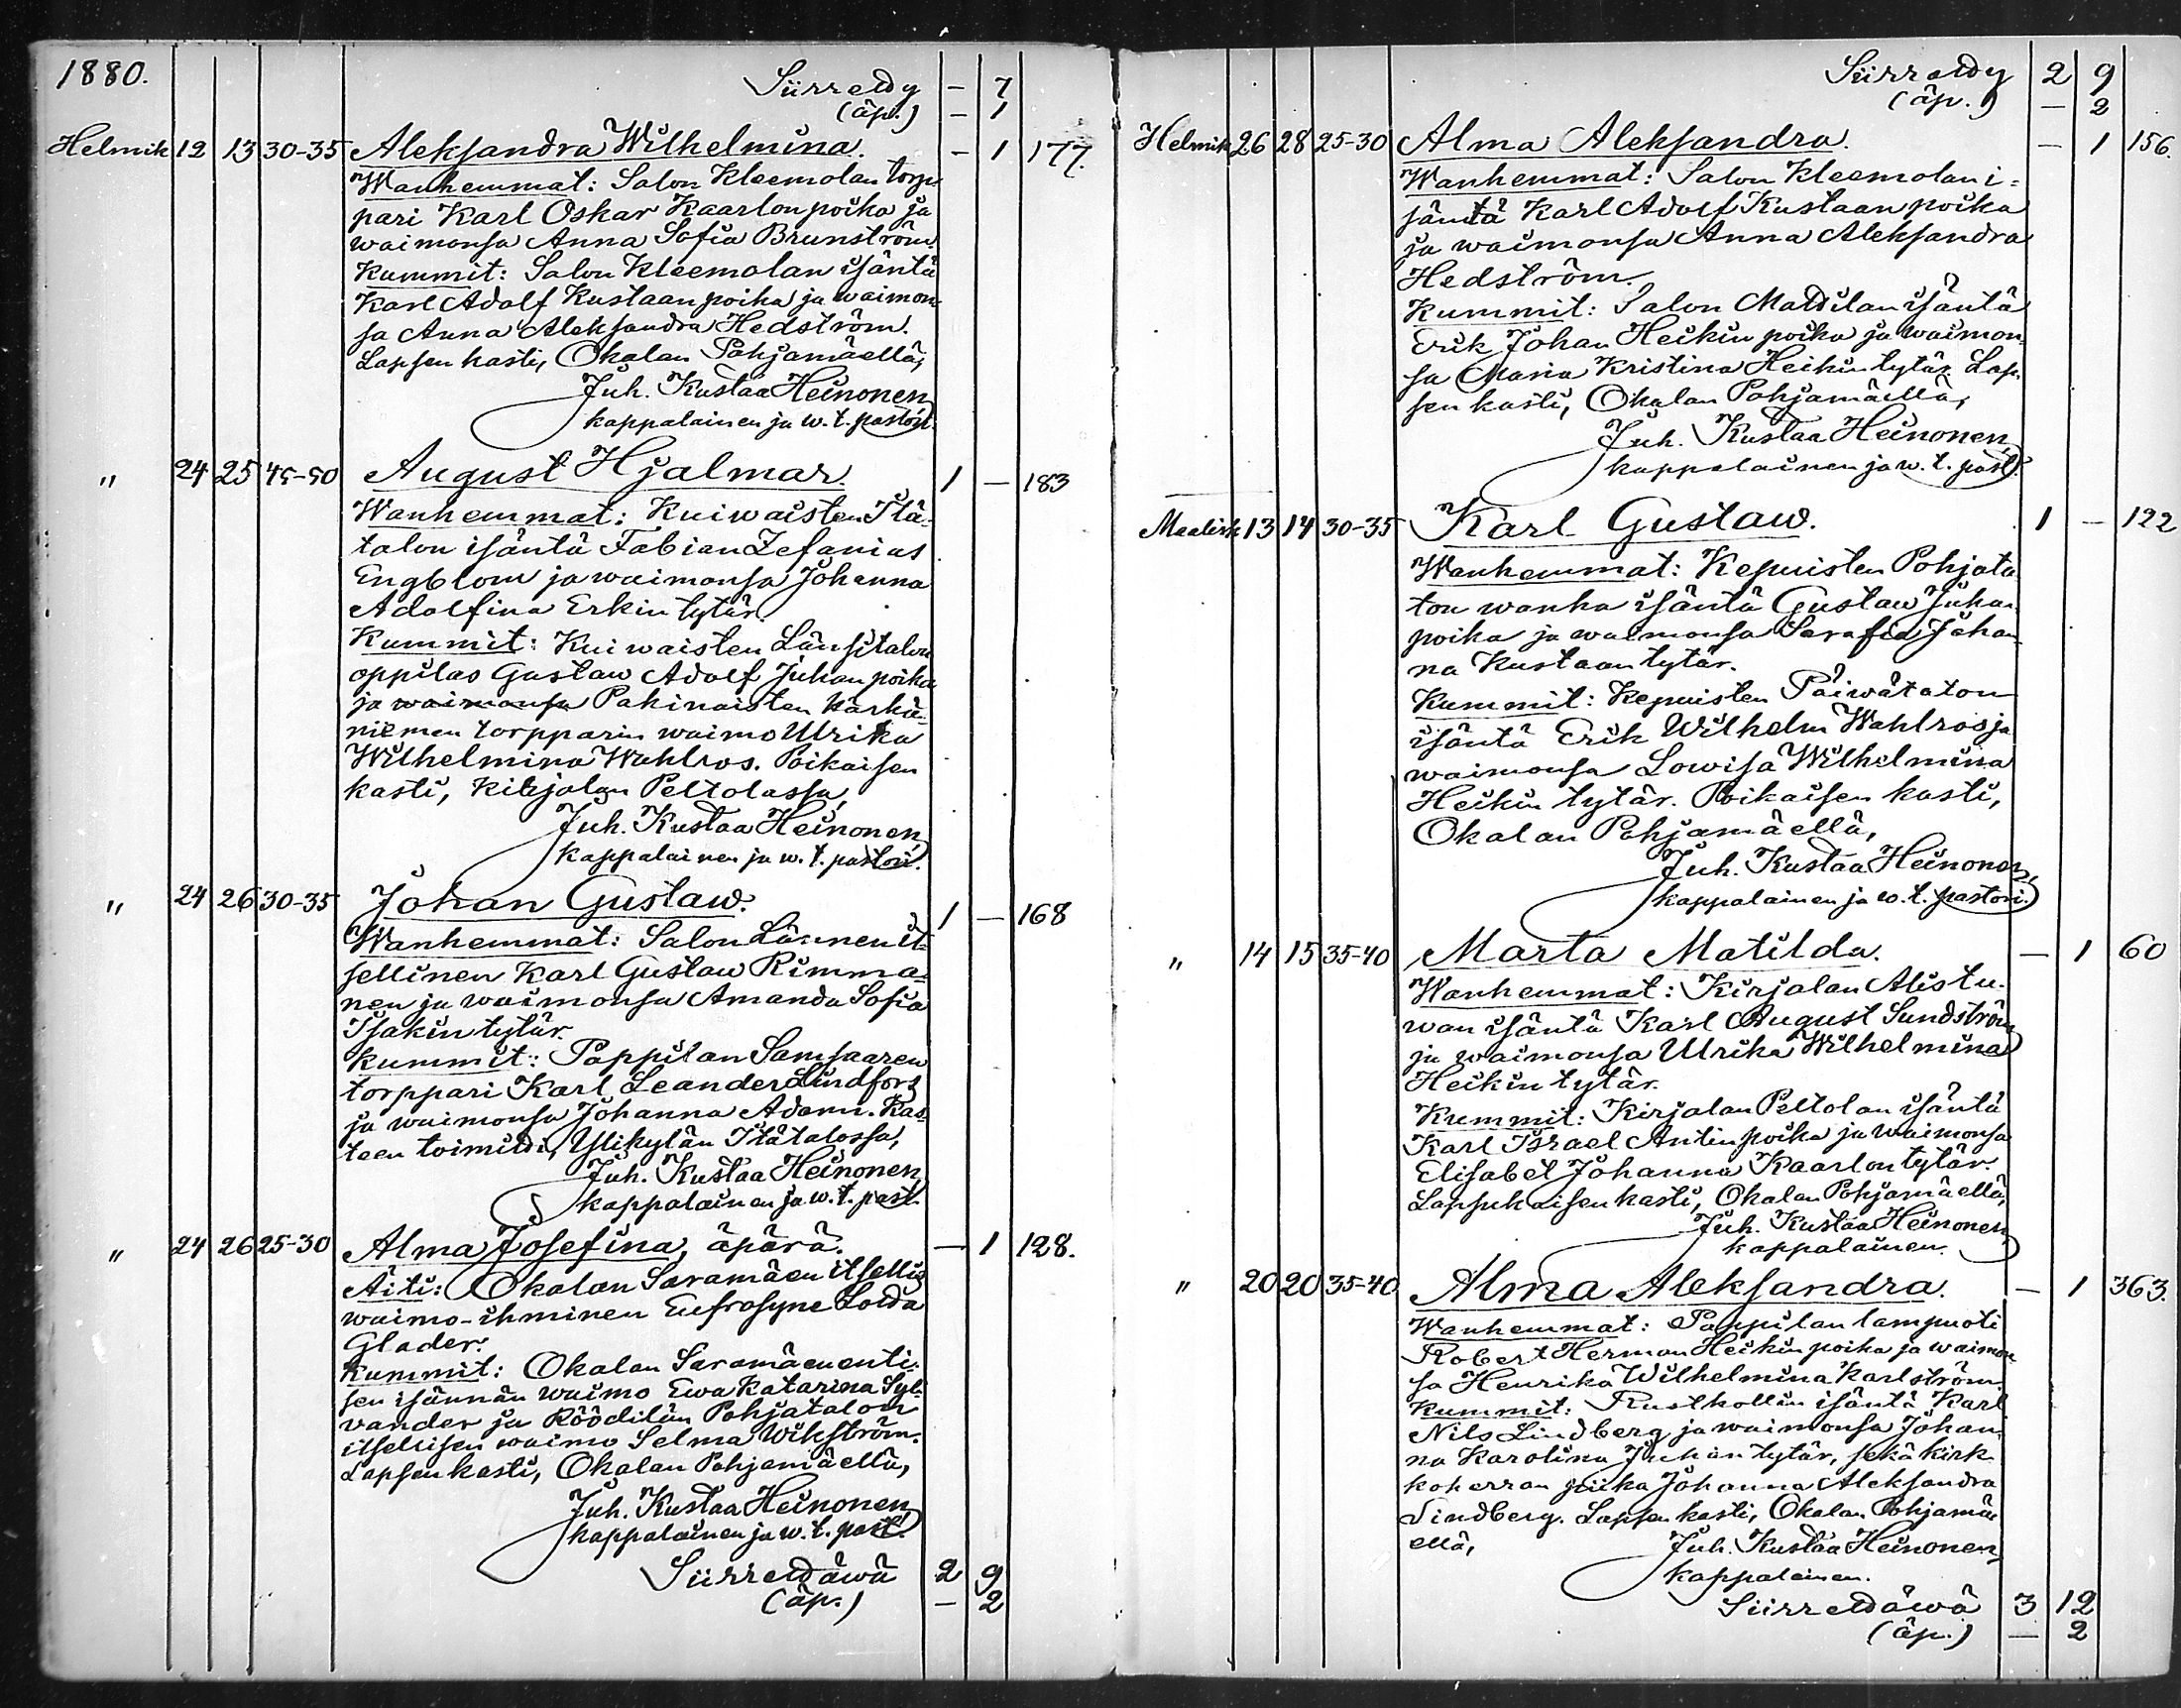 1880.
Siirretty - 7
(äp.) - 1
Helmik 12 13 30-35 Aleksandra Wilhelmina. - 1 177.
Wanhemmat: Salon Kleemolan torp-
pari Karl Oskar Kaarlonpoika ja
waimonsa Anna Sofia Brunström.
Kummit: Salon Kleemolan isäntä
Karl Adolf Kustaanpoika ja waimon-
sa Anna Aleksandra Hedström.
Lapsen kasti, Okalan Pohjamäellä,
Juh. Kustaa Heinonen,
kappalainen ja w. t. pastori.
" 24 25 45-50 August Hjalmar. 1 - 183
Wanhemmat: Kuiwaisten Itä-
talon isäntä Fabian Zefanias
Engblom ja waimonsa Johanna
Adolfina Erkin tytär.
Kummit: Kuiwaisten Länsitalon
oppilas Gustaw Adolf Juhan poika
ja waimonsa Pakinaisten Härkä-
niemen torpparin waimo Ulrika
Wilhelmina Wahlros. Poikaisen
kasti, Kirjalan Peltolassa,
Juh. Kustaa Heinonen,
kappalainen ja w. t. pastori.
" 24 26 30-35 Johan Gustaw. 1 - 168
Wanhemmat: Salon Lännen it-
sellinen Karl Gustaw Rimma-
nen ja waimonsa Amanda Sofia
Isakin tytär.
Kummit: Pappilan Samsaaren
torppari Karl Leander Lindfors
ja waimonsa Johanna Adami. Kas-
teen toimitti, Ylikylän Itätalossa,
Juh. Kustaa Heinonen,
kappalainen ja w. t. past.
" 24 26 25-30 Alma Josefina, äpärä. - 1 128.
Äiti: Okalan Saramäen itsellis
waimo-ihminen Eufrosyne Lovisa
Glader.
Kummit: Okalan Saramäen enti-
sen isännän waimo Ewa Katarina Syl-
vander ja Röödilän Pohjatalon
itsellisen waimo Selma Wikström.
Lapsen kasti, Okalan Pohjamäellä,
Juh. Kustaa Heinonen,
kappalainen ja w. t. past.
Siirrettäwä 2 9
(äp.) - 2
Siirretty 2 9
(äp.) - 2
Helmik 26 28 25-30 Alma Aleksandra. - 1 156.
Wanhemmat: Salon Kleemolan i-
säntä Karl Adolf Kustaan poika
ja waimonsa Anna Aleksandra
Hedström.
Kummit: Salon Mattilan isäntä
Erik Johan Heikin poika ja waimon-
sa Maria Kristina Heikin tytär. Lap-
sen kasti, Okalan Pohjamäellä,
Juh. Kustaa Heinonen,
kappalainen ja w. t. past.
Maalisk 13 14 30-35 Karl Gustaw. 1 - 122
Wanhemmat: Kepuisten Pohjata-
lon wanha isäntä Gustaw Juhan-
poika ja waimonsa Serafia Johan-
na Kustaan tytär.
Kummit: Kepuisten Päiwätalon
isäntä Erik Wilhelm Wahlros ja
waimonsa Lowisa Wilhelmina
Heikin tytär. Poikaisen kasti,
Okalan Pohjamäellä,
Juh. Kustaa Heinonen,
kappalainen ja w. t. pastori.
" 14 15 35-40 Marta Matilda. - 1 60
Wanhemmat: Kirjalan Alistu-
wan isäntä Karl August Sundström
ja waimonsa Ulrika Wilhelmina
Heikin tytär.
Kummit: Kirjalan Peltolan isäntä
Karl Israel Antin poika ja waimonsa
Elisabet Johanna Kaarlon tytär.
Lapsukaisen kasti, Okalan Pohjamäellä,
Juh. Kustaa Heinonen,
kappalainen.
" 20 20 35-40 Alma Aleksandra. - 1 363.
Wanhemmat: Pappilan lampuoti
Robert Herman Heikin poika ja waimon-
sa Henrika Wilhelmina Karlström.
Kummit: Rustholliin isäntä Karl
Nils Lindberg ja waimonsa Johan-
na Karolina Juhan tytär, sekä kirk-
koherran piika Johanna Aleksandra
Lindberg. Lapsen kasti, Okalan Pohjamä-
ellä,
Juh. Kustaa Heinonen,
kappalainen.
Siirrettäwä 3 12
(äp.) - 2